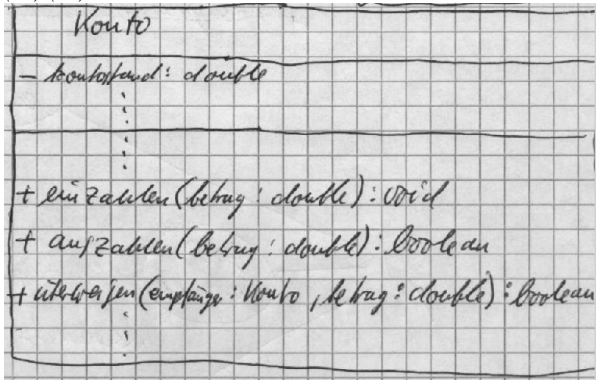 Konto
- kontostand: double
+ einzahlen(betrag: double): void
+ auszahlen(betrag: double): boolean
+ überweisen(empfänger: Konto, betrag: double): boolean